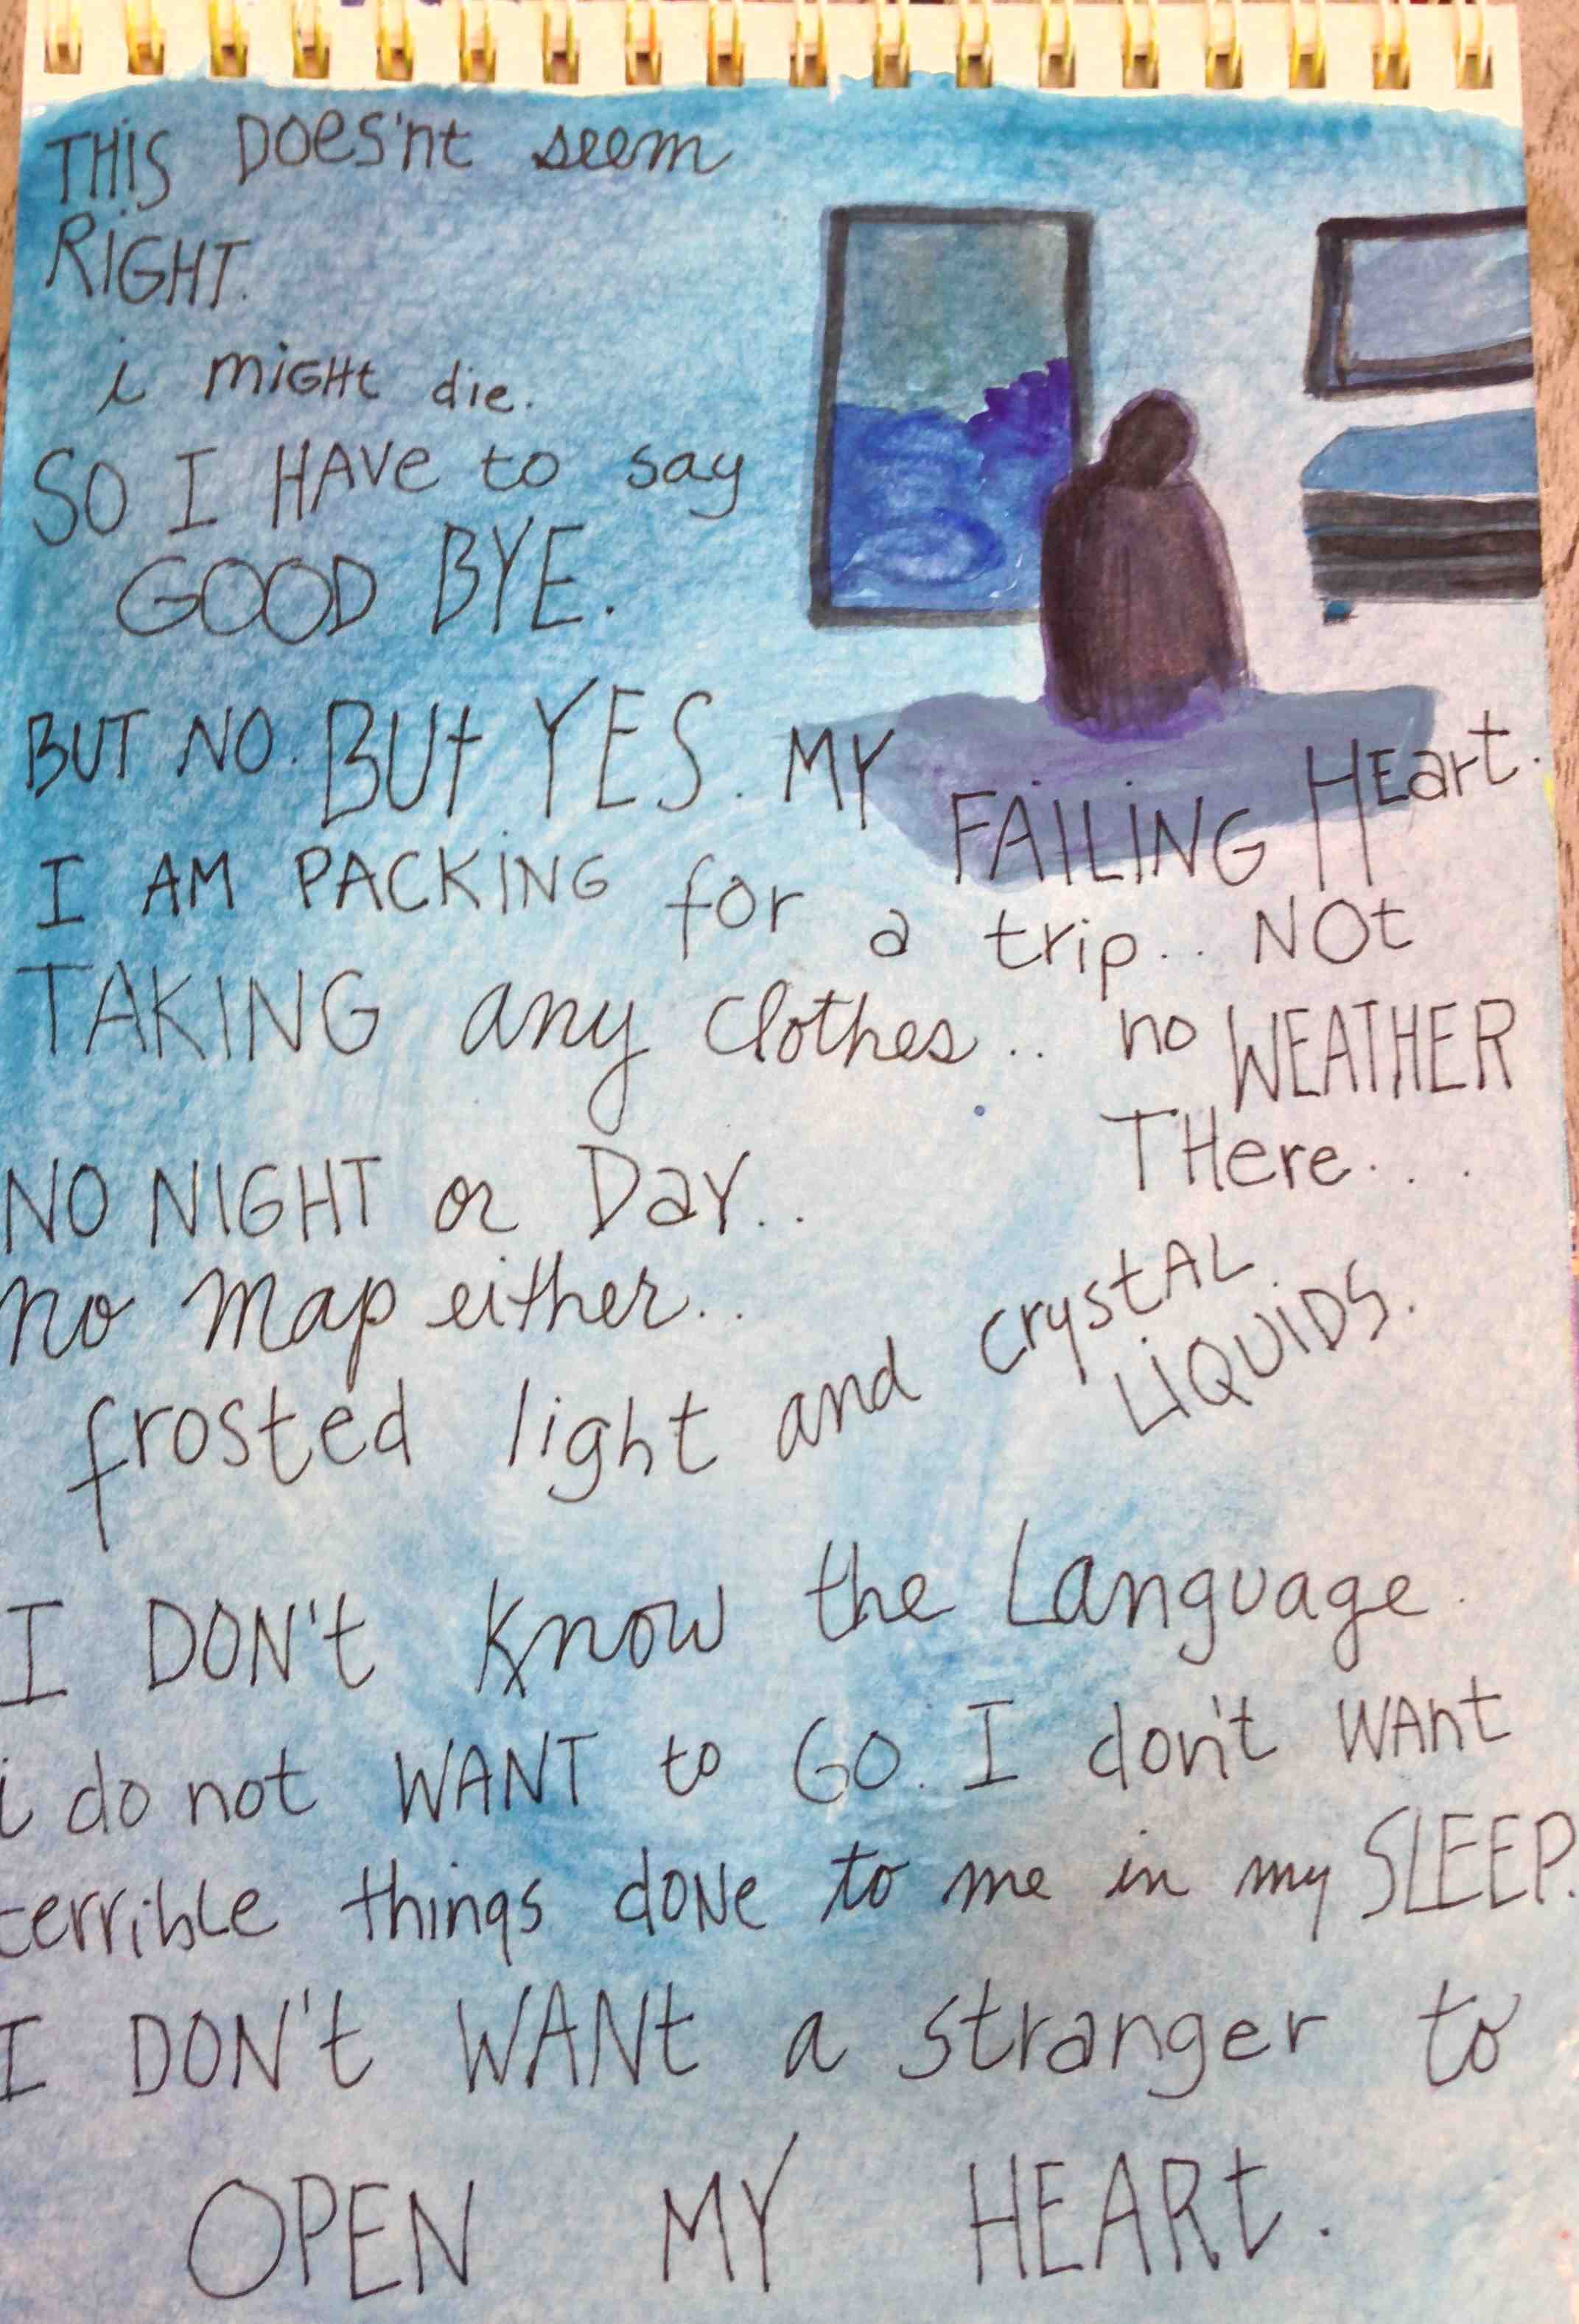 THiS DOes'nt seem
RiGHT.
i miGHt die.
SO I HAVe to say
GOOD BYE.
BUT NO. BUt YES. MY FAiLiNG HEart.
I AM PACKiNG for a trip.. NOt
TAKING any clothes.. no WEATHER
THere...
NO NIGHT or Day..
no map either..
frosted light and crystAL
LiQUiDS.
I DON't know the Language.
i do not WANT to GO. I don't WAnt
terribLe things doNe to me in my SLEEP.
I DON't WANt a stranger to
OPEN MY HEARt.